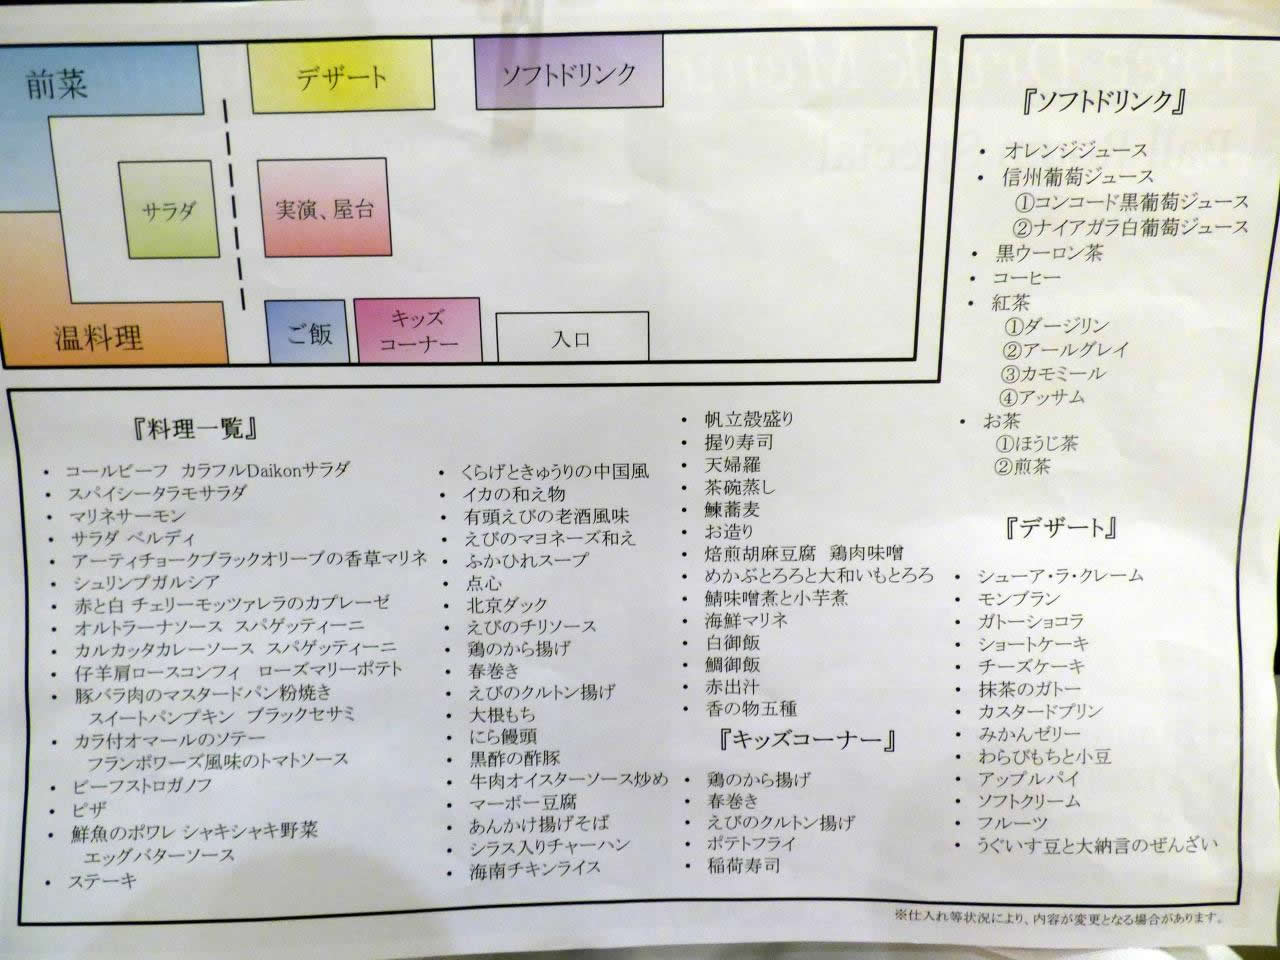 前菜
デザート
ソフトドリンク
サラダ
実演、屋台
温料理
ご飯
キッズ
コーナー
入口
『ソフトドリンク』
・ オレンジジュース
・ 信州葡萄ジュース
①コンコード黒葡萄ジュース
②ナイアガラ白葡萄ジュース
・ 黒ウーロン茶
・ コーヒー
・ 紅茶
①ダージリン
②アールグレイ
③カモミール
④アッサム
・ お茶
①ほうじ茶
②煎茶
『料理一覧』
・ コールビーフ カラフルDaikonサラダ
・ スパイシータラモサラダ
・ マリネサーモン
・ サラダ ベルディ
・ アーティチョークブラックオリーブの香草マリネ
・ シュリンプガルシア
・ 赤と白 チェリーモッツァレラのカプレーゼ
・ オルトラーナソース スパゲッティーニ
・ カルカッタカレーソース スパゲッティーニ
・ 仔羊肩ロースコンフィ ローズマリーポテト
・ 豚バラ肉のマスタードパン粉焼き
スイートパンプキン ブラックセサミ
・ カラ付オマールのソテー
フランボワーズ風味のトマトソース
・ ビーフストロガノフ
・ ピザ
・ 鮮魚のポワレ シャキシャキ野菜
エッグバターソース
・ ステーキ
・ くらげときゅうりの中国風
・ イカの和え物
・ 有頭えびの老酒風味
・ えびのマヨネーズ和え
・ ふかひれスープ
・ 点心
・ 北京ダック
・ えびのチリソース
・ 鶏のから揚げ
・ 春巻き
・ えびのクルトン揚げ
・ 大根もち
・ にら饅頭
・ 黒酢の酢豚
・ 牛肉オイスターソース炒め
・ マーボー豆腐
・ あんかけ揚げそば
・ シラス入りチャーハン
・ 海南チキンライス
・ 帆立殻盛り
・ 握り寿司
・ 天婦羅
・ 茶碗蒸し
・ 鰊蕎麦
・ お造り
・ 焙煎胡麻豆腐 鶏肉味噌
・ めかぶとろろと大和いもとろろ
・ 鯖味噌煮と小芋煮
・ 海鮮マリネ
・ 白御飯
・ 鯛御飯
・ 赤出汁
・ 香の物五種
『キッズコーナー』
・ 鶏のから揚げ
・ 春巻き
・ えびのクルトン揚げ
・ ポテトフライ
・ 稲荷寿司
『デザート』
・ シューア・ラ・クレーム
・ モンブラン
・ ガトーショコラ
・ ショートケーキ
・ チーズケーキ
・ 抹茶のガトー
・ カスタードプリン
・ みかんゼリー
・ わらびもちと小豆
・ アップルパイ
・ ソフトクリーム
・ フルーツ
・ うぐいす豆と大納言のぜんざい
※仕入れ等状況により、内容が変更となる場合があります。